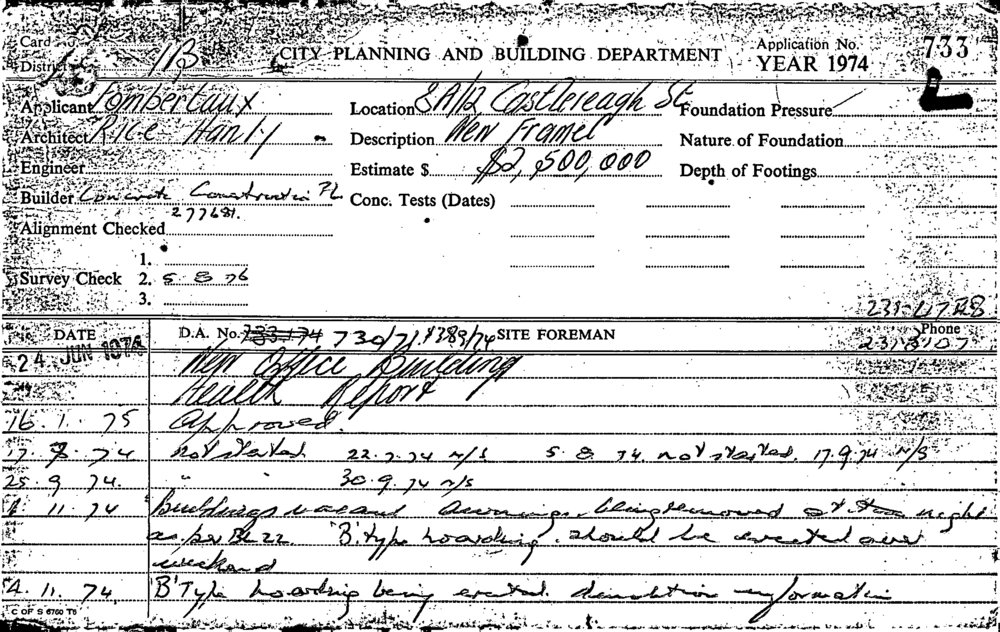 Card No.
District 1B
CITY PLANNING AND BUILDING DEPARTMENT
Application No. 733
YEAR 1974
Applicant Fombertaux
Location 8A/12 Castlereagh St
Foundation Pressure
Architect Rice Hanly
Description New Framed
Nature of Foundation
Engineer
Estimate $ $2,500,000
Depth of Footings
Builder Concrete Construction P/L
277681.
Conc. Tests (Dates)
Alignment Checked
1.
Survey Check 2. 5 8 76
3.
231-4728
DATE
D.A. No. 733-74 730/71 & 389/74 SITE FOREMAN
Phone
231 8107
24 JUN 1974
New Office Building
Health Report
16.1.75 Approved.
17.7.74 not started. 22.7.74 N/S 5.8.74 not started. 17.9.74 N/S
25.9.74. " 30.9.74 N/S
1 11.74 Buildings vacant Awnings being removed at night
as per BL 22 'B' type hoarding should be erected over
weekend
4.11.74 'B' Type hoarding being erected. demolition information
C OF S 6760 T6